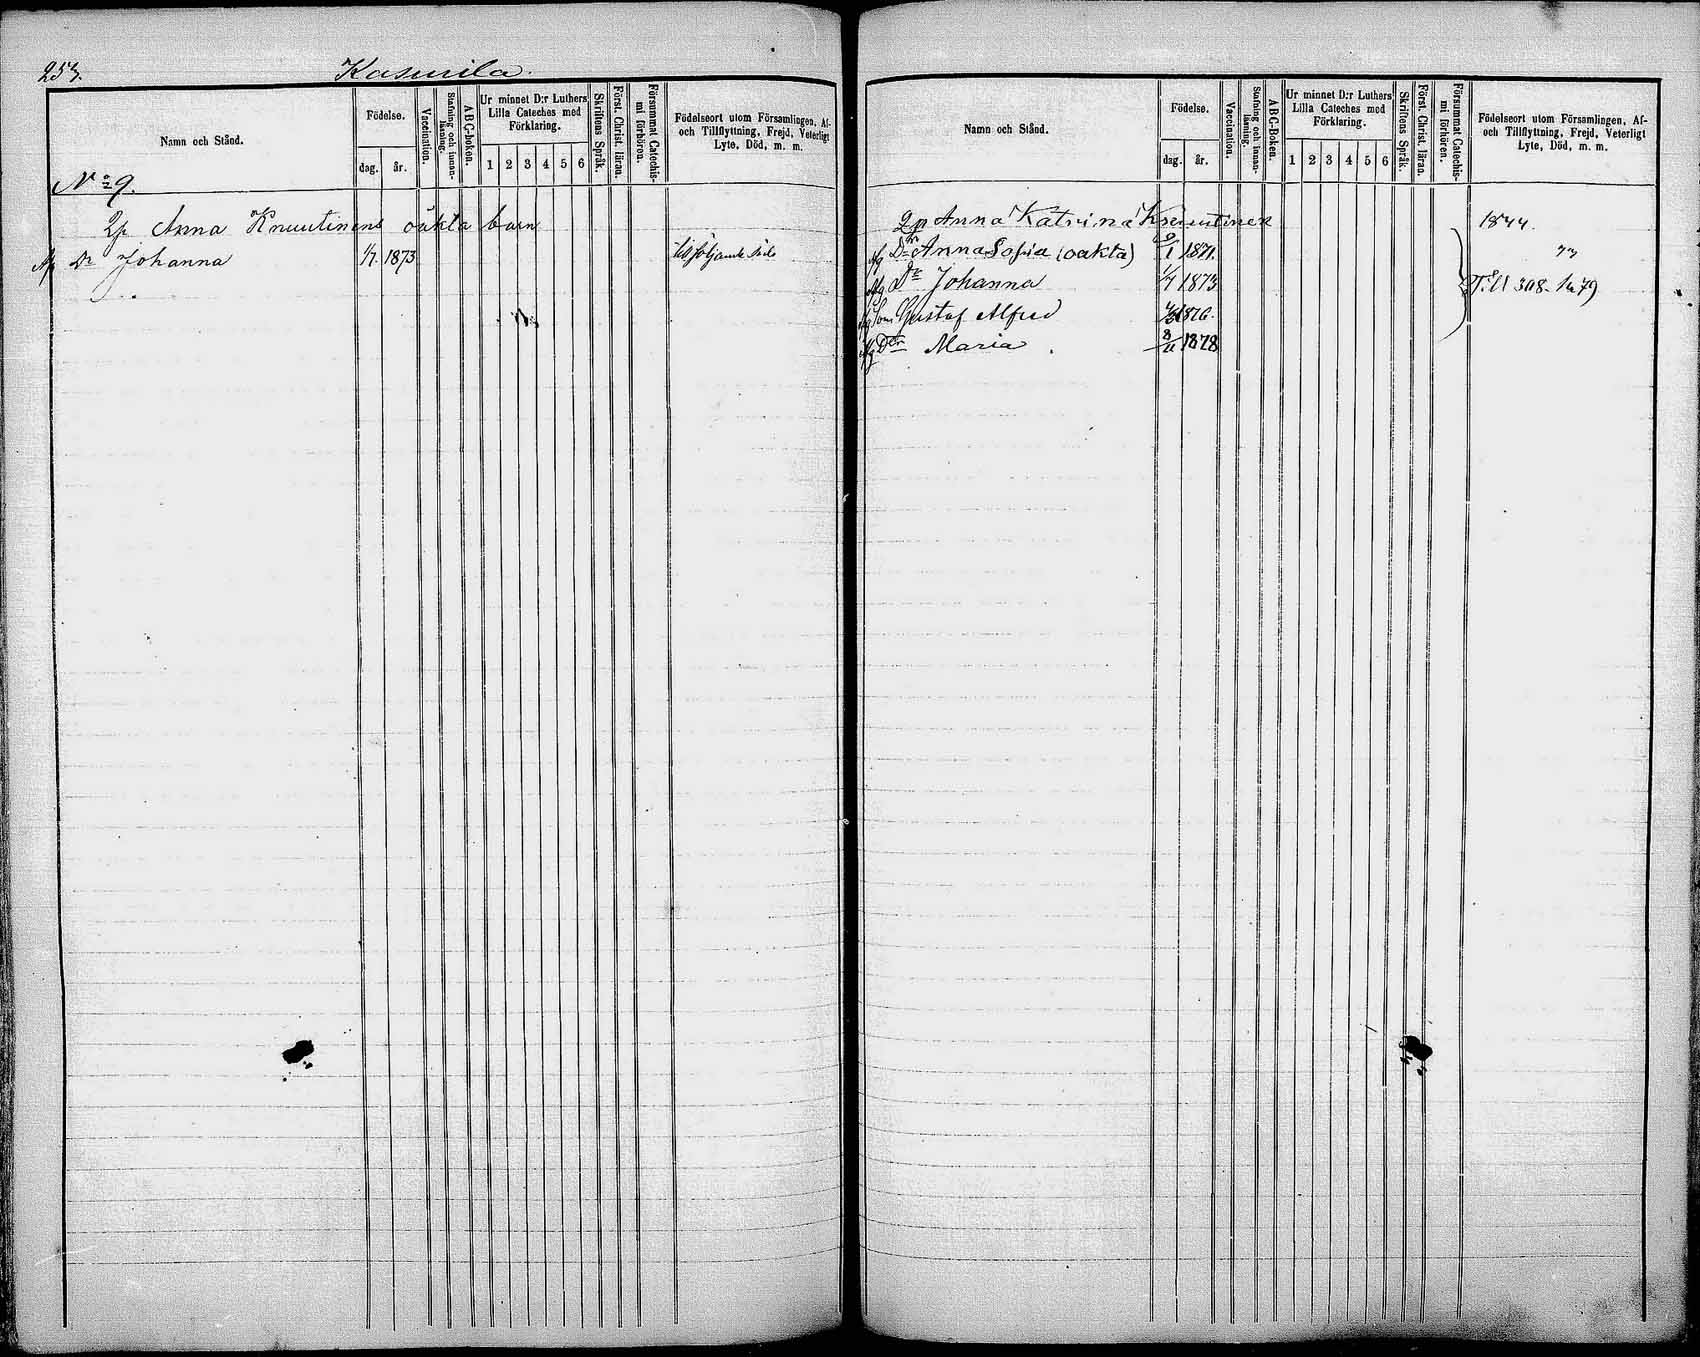 253.
Kasurila.
Namn och Stånd.
Födelse.
dag.
år.
Vaccination.
Stafning och innan-
läsning.
ABC-Boken.
Ur minnet D:r Luthers
Lilla Cateches med
Förklaring.
1 2 3 4 5 6
Skriftens Språk.
Först. Christ. läran.
Försummat Catechis-
mi förhören.
Födelseort utom Församlingen, Af-
och Tillflyttning, Frejd, Veterligt
Lyte, Död, m. m.
No 9.
Anna Knuutinens oäkta barn
Dr Johanna 1/7. 1873 till följande sida
Namn och Stånd.
Födelse.
dag.
år.
Vaccination.
Stafning och innan-
läsning.
ABC-Boken.
Ur minnet D:r Luthers
Lilla Cateches med
Förklaring.
1 2 3 4 5 6
Skriftens Språk.
Först. Christ. läran.
Försummat Catechis-
mi förhören.
Födelseort utom Församlingen, Af-
och Tillflyttning, Frejd, Veterligt
Lyte, Död, m. m.
Anna Katrina Knuutinen 1844.
Dr Anna Sofia (oäkta) 1871.
Dr Johanna 1/7 1873 Till 308
Son Gustaf Alfred 1876.
Dr Maria 1878